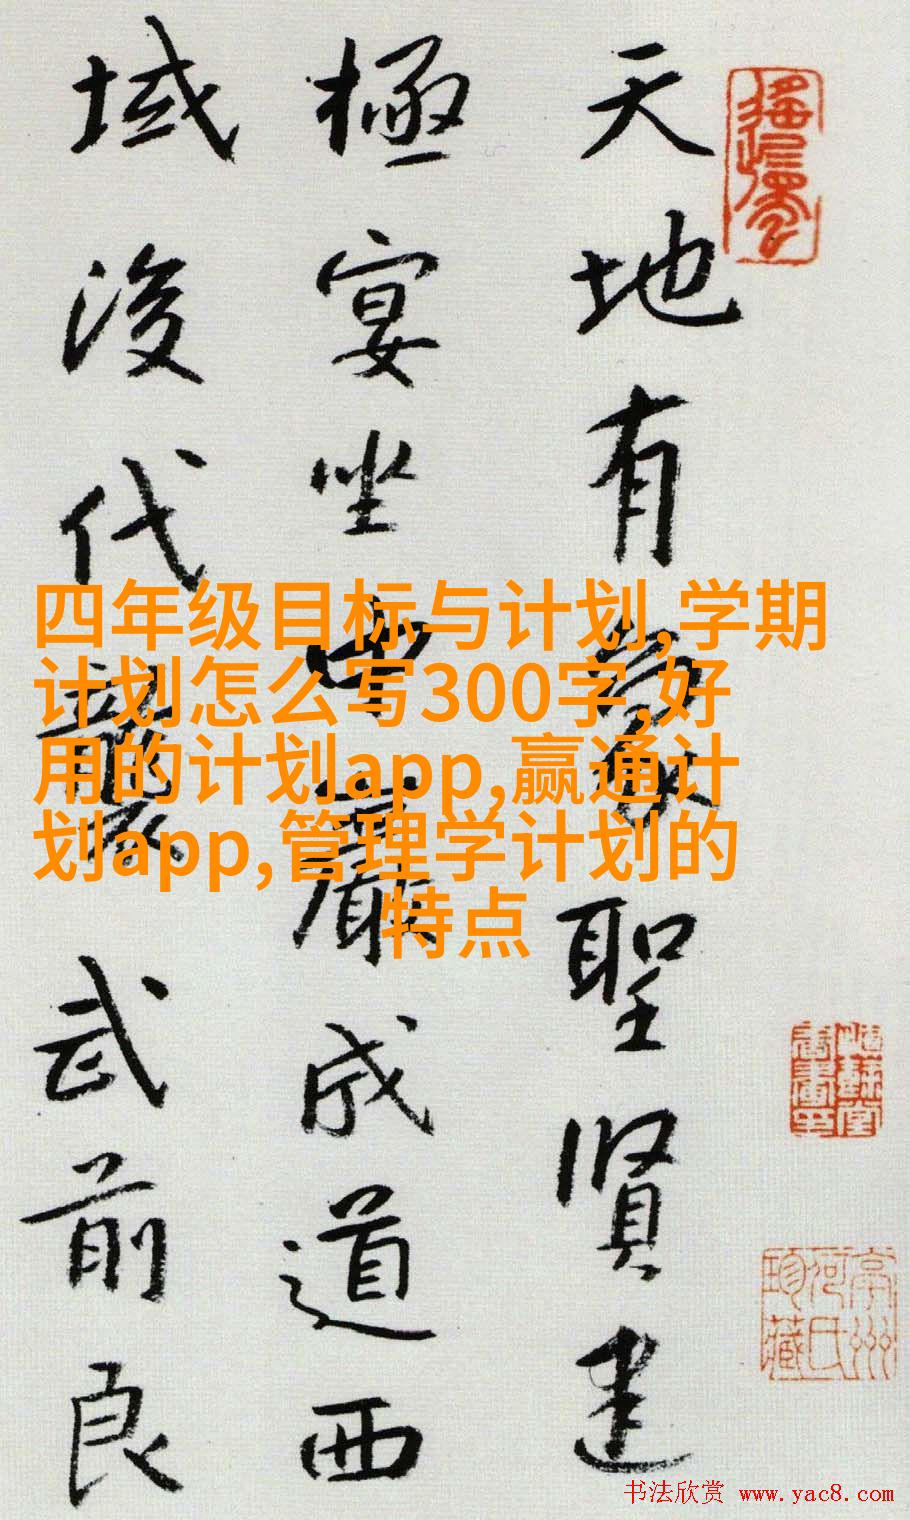 天地有 聖贤建
極宴坐中巖成道西
域後代襲武前良
四年级目标与计划,学期
计划怎么写300字,好
用的计划app,赢通计
划app,管理学计划的
特点
亭州
河氏
珍藏
书法欣赏 www.yac8.com